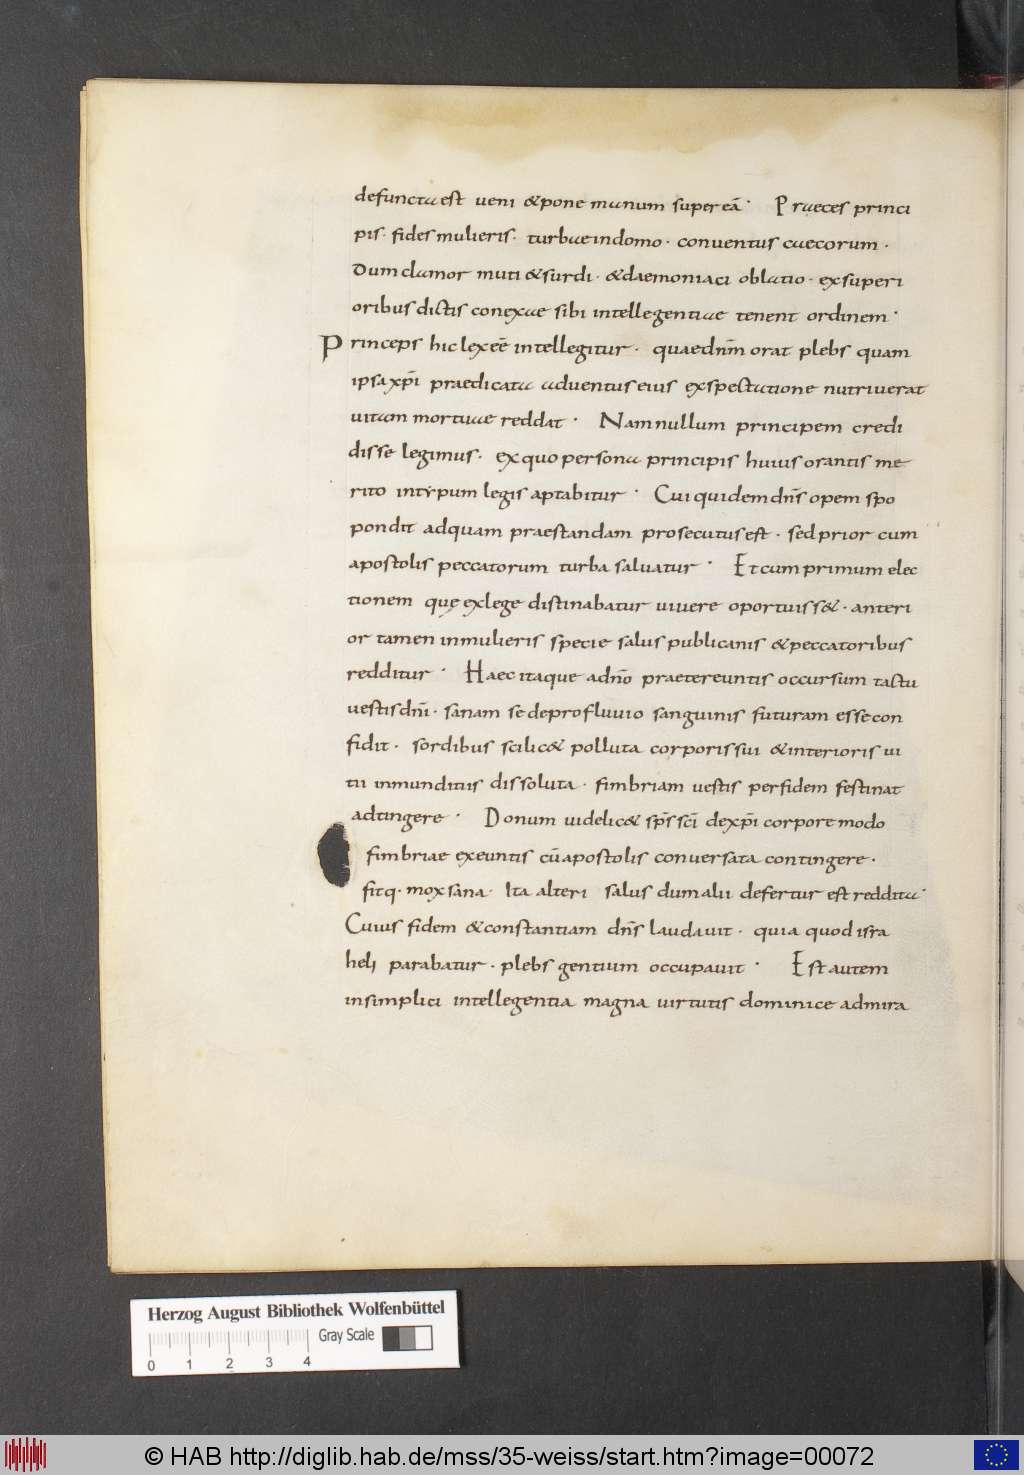 defuncta est ueni & pone manum super eā· Praeces princi
pis· fides mulieris· turbae in domo· conuentus caecorum·
dum clamor muti & surdi· & daemoniaci oblatio· exsuperi
oribus dictis conexae sibi intellegentiae tenent ordinem·
Princeps hic lex eē intellegitur· quae dn̄m orat plebs quam
ipsa xp̄i praedicata aduentus eius exspectatione nutriuerat
uitam mortuae reddat· Nam nullum principem credi
disse legimus· ex quo persona principis huius orantis me
rito in typum legis aptabitur· Cui quidem dn̄s opem spo
pondit ad quam praestandam prosecutus est· sed prior cum
apostolis peccatorum turba saluatur· Et cum primum elec
tionem quę ex lege distinabatur uiuere oportuiss&· anteri
or tamen in mulieris specie salus publicanis & peccatoribus
redditur· Haec itaque ad dn̄o praetereuntis occursum tactu
uestis dn̄i· sanam se de profluuio sanguinis futuram esse con
fidit· sordibus scilic& polluta corporis sui & interioris ui
tii inmunditiis dissoluta· fimbriam uestis per fidem festinat
adtingere· Donum uidelic& sp̄s sc̄i de xp̄i corpore modo
fimbriae exeuntis cū apostolis conuersata contingere·
fitq· mox sana· Ita alteri salus dum alii defertur est reddita·
Cuius fidem & constantiam dn̄s laudauit· quia quod isra
heli parabatur· plebs gentium occupauit· Est autem
in simplici intellegentia magna uirtutis dominice admira
Herzog August Bibliothek Wolfenbüttel
Gray Scale
0 1 2 3 4
© HAB http://diglib.hab.de/mss/35-weiss/start.htm?image=00072